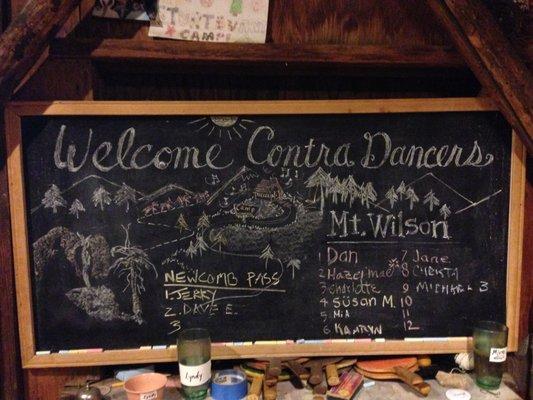 CAMP!
Welcome Contra Dancers
Mt. Wilson
NEWCOMB PASS
1. JERKY
2. DAVE E.
3
1 Dan
2 Hazel mae
3 Charlotte
4 SUSAN M.
5 MIA
6 KAMRYN
7 Jane
8 CHRISTA
9 MICHAEL B
10
11
12
Lyndy